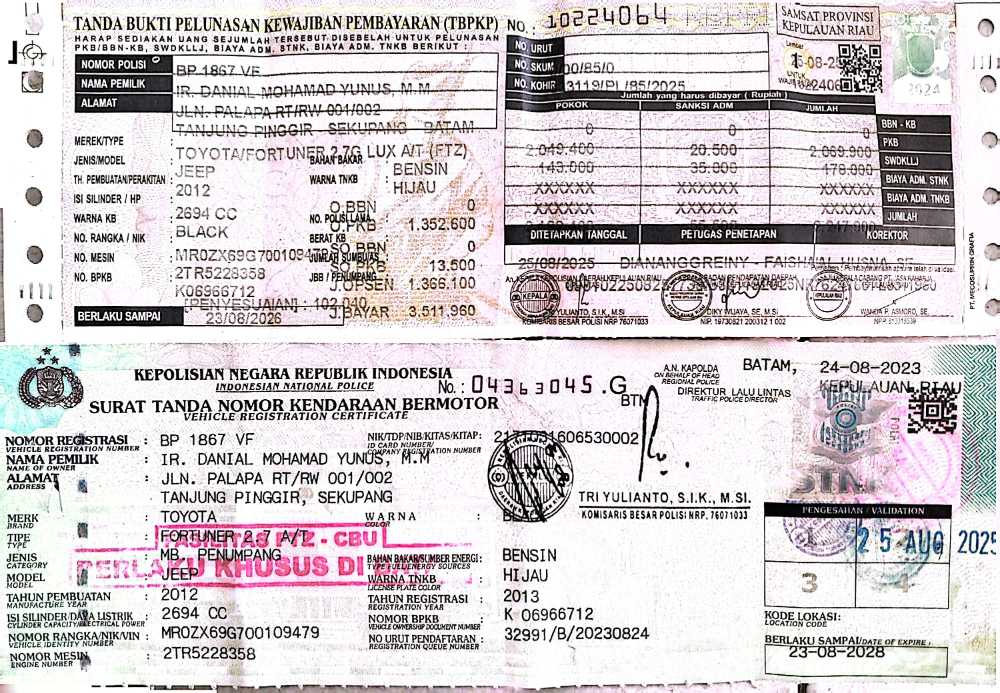 TANDA BUKTI PELUNASAN KEWAJIBAN PEMBAYARAN (TBPKP) NO. 10224064
HARAP SEDIAKAN UANG SEJUMLAH TERSEBUT DISEBELAH UNTUK PELUNASAN
PKB/BBN-KB, SWDKLLJ, BIAYA ADM. STNK, BIAYA ADM. TNKB BERIKUT :
SAMSAT PROVINSI
KEPULAUAN RIAU
NOMOR POLISI : BP 1867 VF
NAMA PEMILIK : IR. DANIAL MOHAMAD YUNUS, M.M
ALAMAT : JLN. PALAPA RT/RW 001/002
TANJUNG PINGGIR - SEKUPANG - BATAM
MEREK/TYPE : TOYOTA/FORTUNER 2.7G LUX A/T (FTZ)
JENIS/MODEL : JEEP
BAHAN BAKAR : BENSIN
TH. PEMBUATAN/PERAKITAN : 2012
WARNA TNKB : HIJAU
ISI SILINDER / HP : 2694 CC
O.BBN 0
WARNA KB : BLACK
NO. POLISI LAMA
O.PKB 1.352.600
NO. RANGKA / NIK : MR0ZX69G700109479
BERAT KB
SO.BBN 0
NO. MESIN : 2TR5228358
JUMLAH SUMBU/AS
13.500
NO. BPKB : K06966712
JBB / PENUMPANG
J.OPSEN 1.366.100
[PENYESUAIAN] : 102.040
J.BAYAR 3.511.960
BERLAKU SAMPAI : 23/08/2026
NO. URUT
NO. SKUM 00/85/0
NO. KOHIR 3119/PL/85/2025
Lembar 1
UNTUK
2024
Jumlah yang harus dibayar ( Rupiah )
POKOK SANKSI ADM JUMLAH
0 0 0 BBN - KB
2.049.400 20.500 2.069.900 PKB
143.000 35.000 178.000 SWDKLLJ
XXXXXX XXXXXX XXXXXX BIAYA ADM. STNK
XXXXXX XXXXXX XXXXXX BIAYA ADM. TNKB
JUMLAH
DITETAPKAN TANGGAL PETUGAS PENETAPAN KOREKTOR
25/08/2025 DIANANGGREINY - FAISHAAL HUSNA, SE
KEPALA
TRI YULIANTO, S.I.K, M.SI
KOMISARIS BESAR POLISI NRP. 76071033
DIKY WIJAYA, SE, M.SI
NIP. 19730821 200312 1 002
PT. MECOSUPRIN GRAFIA
KEPOLISIAN NEGARA REPUBLIK INDONESIA
INDONESIAN NATIONAL POLICE
No.: 04363045.G
SURAT TANDA NOMOR KENDARAAN BERMOTOR
VEHICLE REGISTRATION CERTIFICATE
BTN
A.N. KAPOLDA
ON BEHALF OF HEAD
REGIONAL POLICE
DIREKTUR LALU LINTAS
TRAFFIC POLICE DIRECTOR
BATAM, 24-08-2023
KEPULAUAN RIAU
NOMOR REGISTRASI : BP 1867 VF
VEHICLE REGISTRATION NUMBER
NIK/TDP/NIB/KITAS/KITAP:
ID CARD NUMBER/
COMPANY REGISTRATION NUMBER
NAMA PEMILIK : IR. DANIAL MOHAMAD YUNUS, M.M
NAME OF OWNER
ALAMAT : JLN. PALAPA RT/RW 001/002
ADDRESS
TANJUNG PINGGIR, SEKUPANG
TRI YULIANTO, S.I.K., M.SI.
KOMISARIS BESAR POLISI NRP. 76071033
MERK : TOYOTA
BRAND
WARNA :
COLOR
TIPE : FORTUNER 2,7 A/T
TYPE
FASILITAS FTZ - CBU
JENIS : MB. PENUMPANG
CATEGORY
BAHAN BAKAR/SUMBER ENERGI : BENSIN
TYPE FUEL/ENERGY SOURCES
BERLAKU KHUSUS DI
MODEL : JEEP
MODEL
WARNA TNKB : HIJAU
LICENSE PLATE COLOR
TAHUN PEMBUATAN : 2012
MANUFACTURE YEAR
TAHUN REGISTRASI : 2013
REGISTRATION YEAR
ISI SILINDER/DAYA LISTRIK : 2694 CC
CYLINDER CAPACITY/ELECTRICAL POWER
NOMOR BPKB : K 06966712
VEHICLE OWNERSHIP DOCUMENT NUMBER
NOMOR RANGKA/NIK/VIN : MR0ZX69G700109479
VEHICLE IDENTITY NUMBER
NO URUT PENDAFTARAN : 32991/B/20230824
REGISTRATION QUEUE NUMBER
NOMOR MESIN : 2TR5228358
ENGINE NUMBER
STNK
PENGESAHAN / VALIDATION
1
25 AUG 2025
3 4
KODE LOKASI:
LOCATION CODE
BERLAKU SAMPAI/DATE OF EXPIRE :
23-08-2028